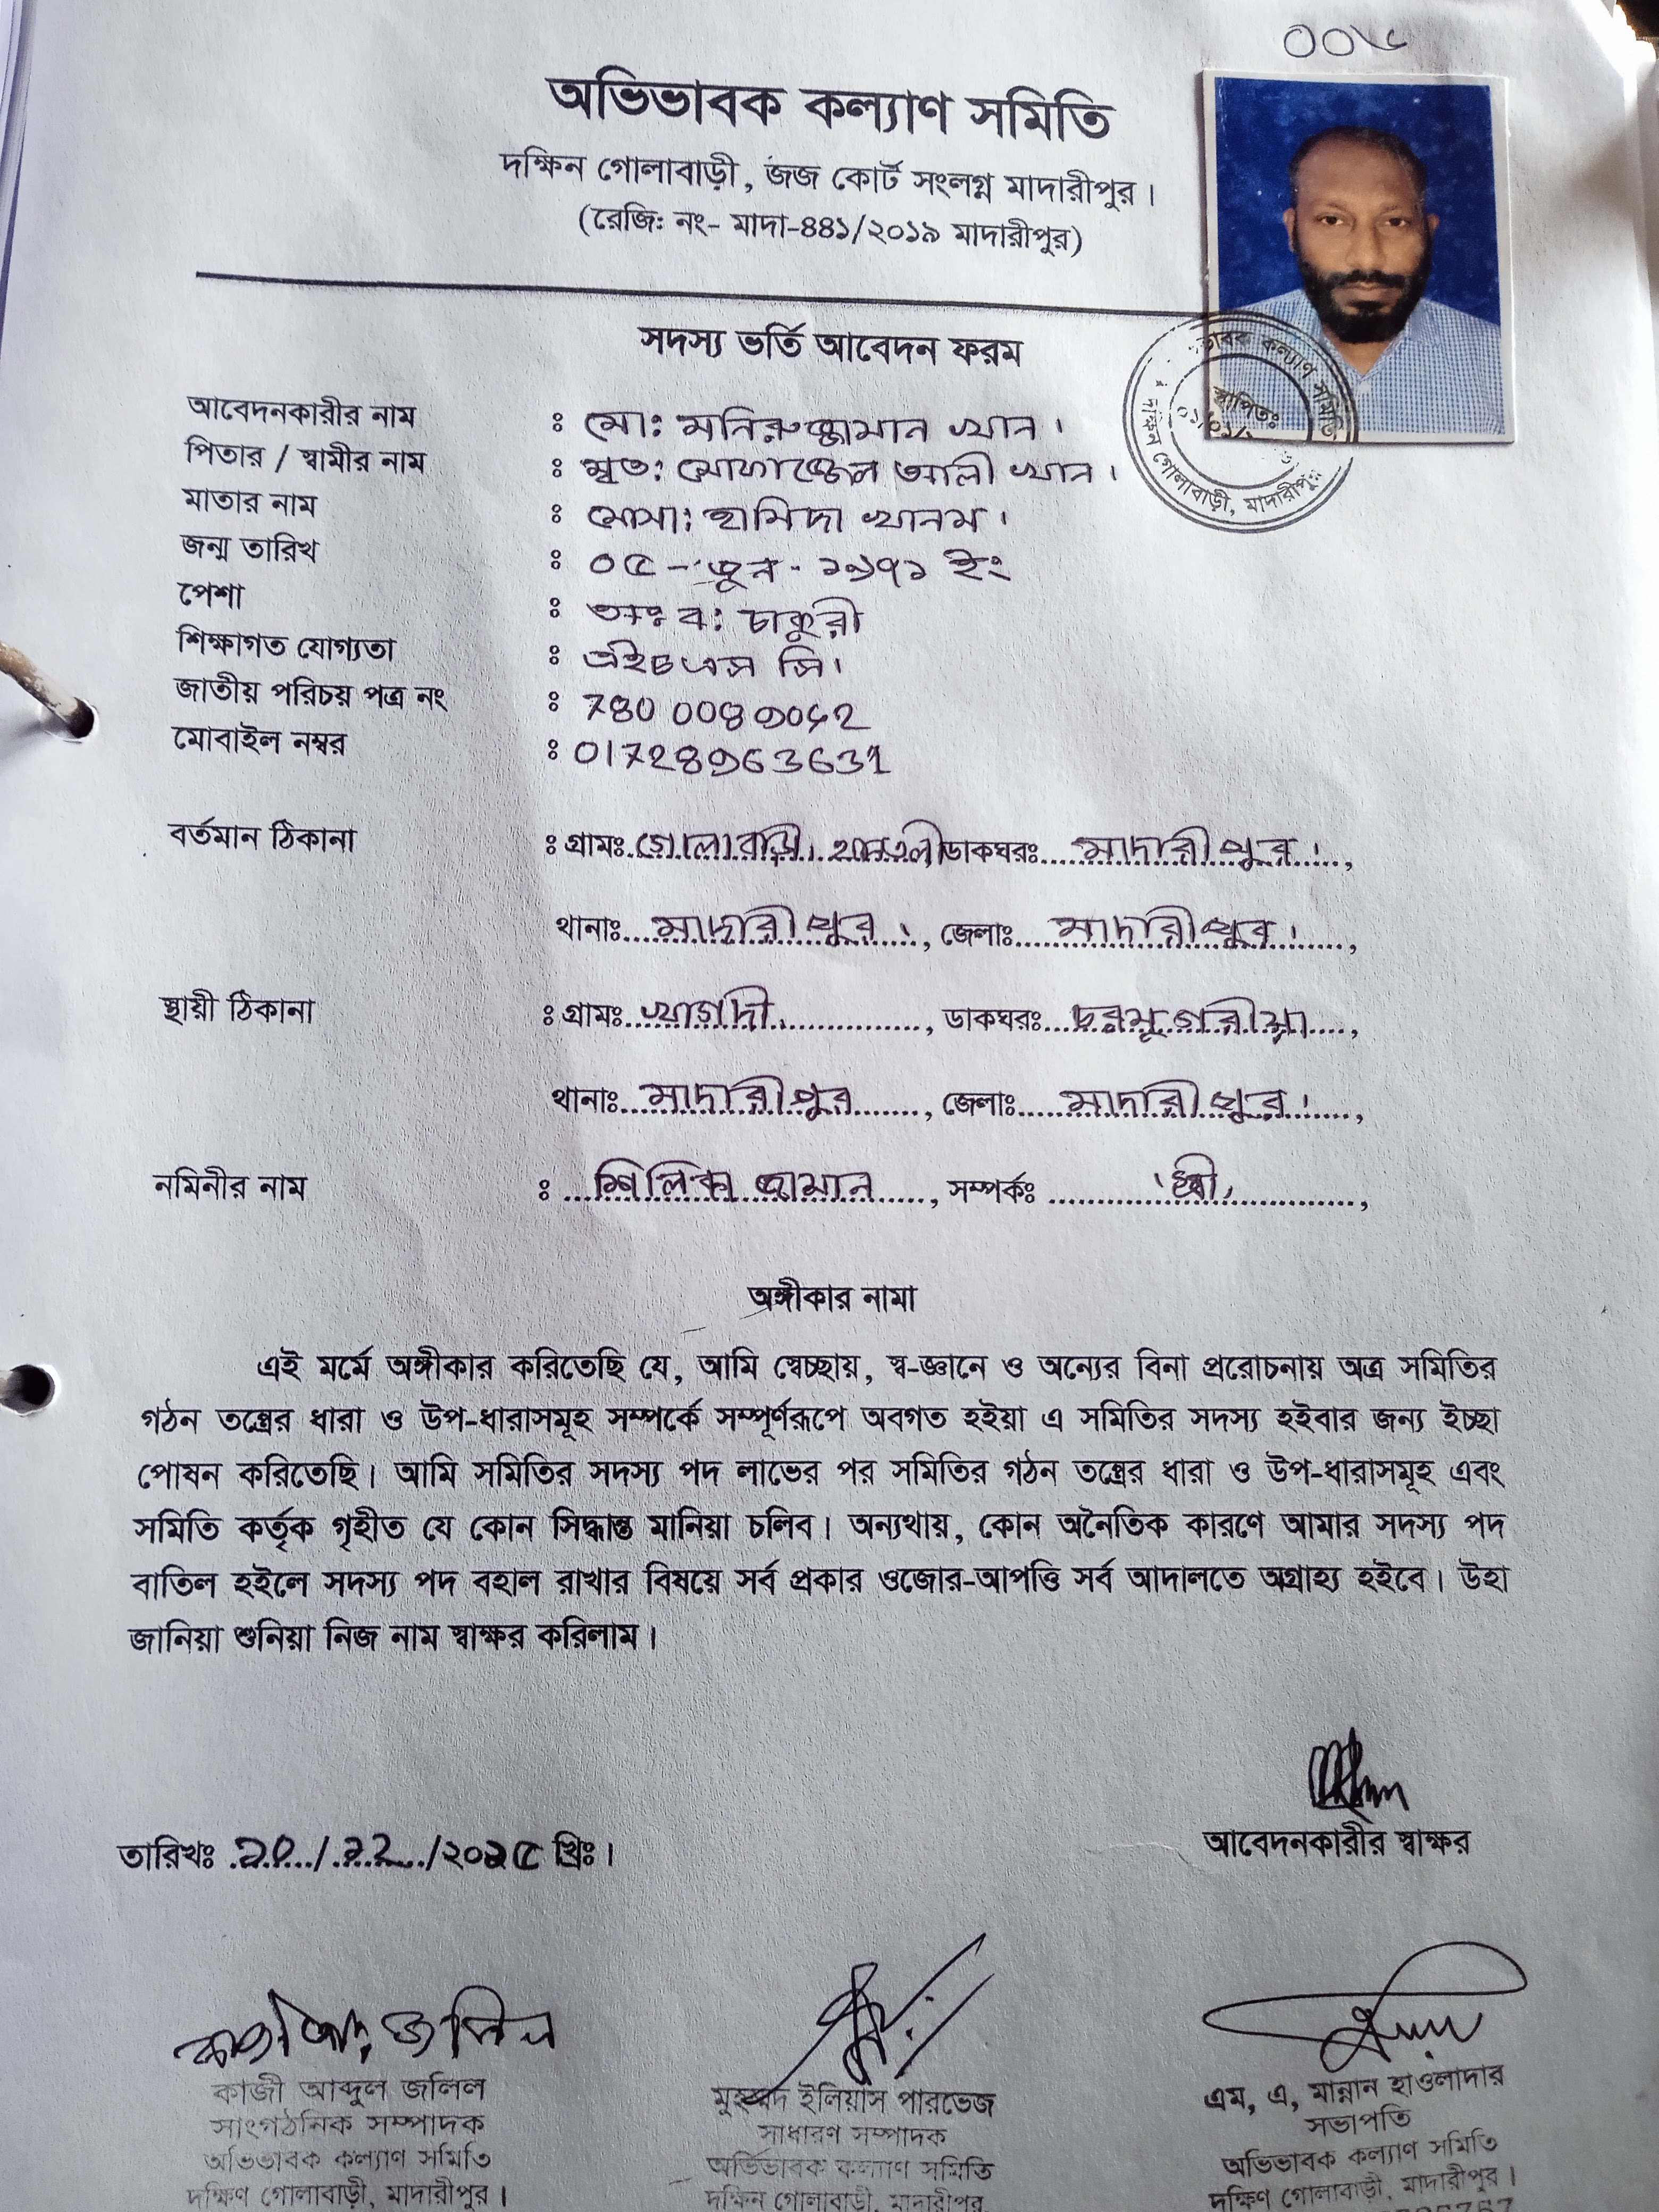 অভিভাবক কল্যাণ সমিতি
দক্ষিন গোলাবাড়ী, জজ কোর্ট সংলগ্ন মাদারীপুর।
(রেজিঃ নং- মাদা-৪৪১/২০১৯ মাদারীপুর)
সদস্য ভর্তি আবেদন ফরম
আবেদনকারীর নাম : মো: মনিরুজ্জামান খান।
পিতার / স্বামীর নাম : মৃত: মোফাজ্জেল আলী খান।
মাতার নাম : মোসা: হামিদা খানম।
জন্ম তারিখ : ০৫ - জুন - ১৯৭১ ইং
পেশা : অবঃ চাকুরী
শিক্ষাগত যোগ্যতা : এইচ এস সি।
জাতীয় পরিচয় পত্র নং : 780 008
মোবাইল নম্বর : 01728963631
বর্তমান ঠিকানা : গ্রামঃ গোলাবাড়ী। ডাকঘরঃ মাদারীপুর।,
থানাঃ মাদারীপুর।, জেলাঃ মাদারীপুর।,
স্থায়ী ঠিকানা : গ্রামঃ খাগদী, ডাকঘরঃ চরমুগরীয়া,
থানাঃ মাদারীপুর, জেলাঃ মাদারীপুর।,
নমিনীর নাম : লিপিকা জামান, সম্পর্কঃ স্ত্রী,
অঙ্গীকার নামা
এই মর্মে অঙ্গীকার করিতেছি যে, আমি স্বেচ্ছায়, স্ব-জ্ঞানে ও অন্যের বিনা প্ররোচনায় অত্র সমিতির
গঠন তন্ত্রের ধারা ও উপ-ধারাসমূহ সম্পর্কে সম্পূর্ণরূপে অবগত হইয়া এ সমিতির সদস্য হইবার জন্য ইচ্ছা
পোষন করিতেছি। আমি সমিতির সদস্য পদ লাভের পর সমিতির গঠন তন্ত্রের ধারা ও উপ-ধারাসমূহ এবং
সমিতি কর্তৃক গৃহীত যে কোন সিদ্ধান্ত মানিয়া চলিব। অন্যথায়, কোন অনৈতিক কারণে আমার সদস্য পদ
বাতিল হইলে সদস্য পদ বহাল রাখার বিষয়ে সর্ব প্রকার ওজোর-আপত্তি সর্ব আদালতে অগ্রাহ্য হইবে। উহা
জানিয়া শুনিয়া নিজ নাম স্বাক্ষর করিলাম।
আবেদনকারীর স্বাক্ষর
তারিখঃ খ্রিঃ।
কাজী আব্দুল জলিল
সাংগঠনিক সম্পাদক
অভিভাবক কল্যাণ সমিতি
দক্ষিণ গোলাবাড়ী, মাদারীপুর।
মুহম্মদ ইলিয়াস পারভেজ
সাধারণ সম্পাদক
অভিভাবক কল্যাণ সমিতি
দক্ষিন গোলাবাড়ী, মাদারীপুর
এম, এ, মান্নান হাওলাদার
সভাপতি
অভিভাবক কল্যাণ সমিতি
দক্ষিণ গোলাবাড়ী, মাদারীপুর।